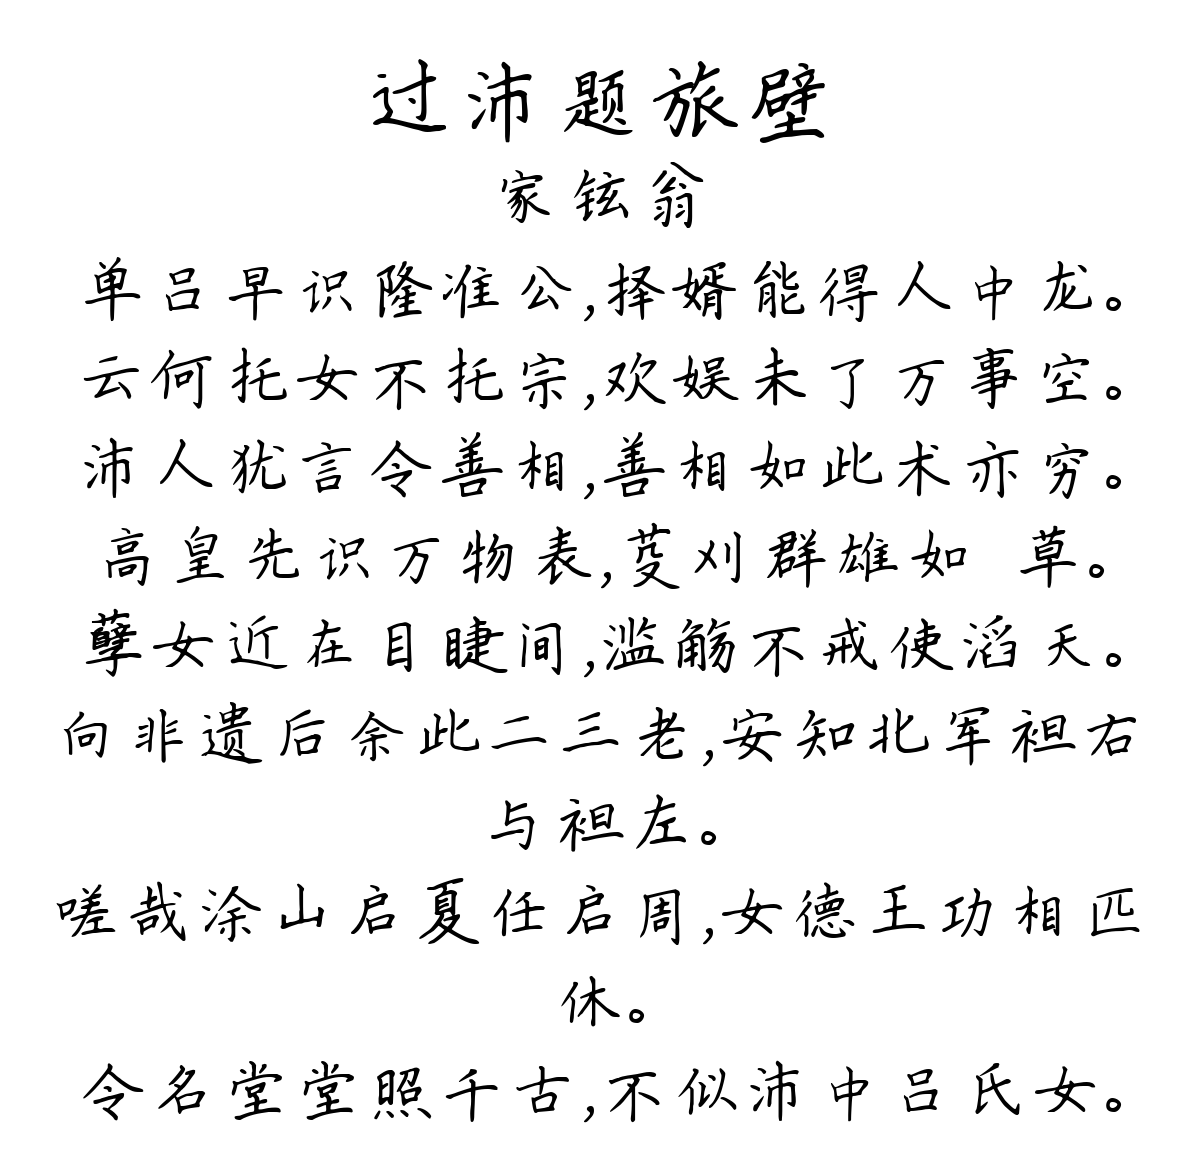 过沛题旅壁
家铉翁
单吕早识隆准公,择婿能得人中龙。
云何托女不托宗,欢娱未了万事空。
沛人犹言令善相,善相如此术亦穷。
高皇先识万物表,芟刈群雄如 草。
孽女近在目睫间,滥觞不戒使滔天。
向非遗后余此二三老,安知北军袒右
与袒左。
嗟哉涂山启夏任启周,女德王功相匹
休。
令名堂堂照千古,不似沛中吕氏女。